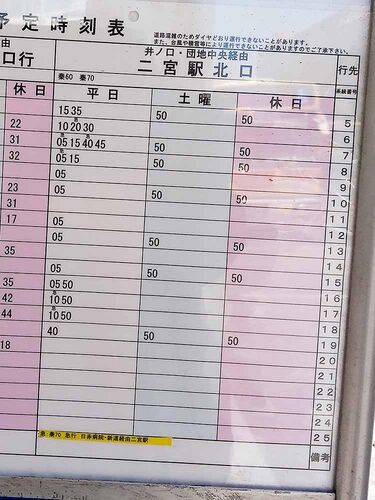 予定時刻表
道路混雑のためダイヤどおり運行できないことがあります。
また、台風や積雪等により運行できないことがありますのでご了承下さい。
由
口行
井ノ口・団地中央経由
二宮駅北口
行先
秦60 秦70
系統番号
休日 平日 土曜 休日
15 35 50 50 5
22 10 20 30 50 50 6
31 05 15 40 45 50 50 7
32 05 15 50 50 8
05 9
23 05 50 50 10
31 11
17 05 12
05 50 50 13
35 14
05 50 50 15
35 05 50 16
42 10 50 17
44 10 50 18
40 50 50 19
18 20
21
22
23
24
急 秦70 急行 日赤病院・新道経由二宮駅 25
備考